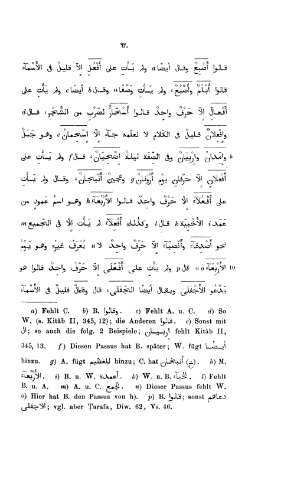 ٣٧.
قالوا أَصْبَع وقال أيضا ولم يأت على أَفْعَل إلّا قليل فى الأسماء
قالوا أَبْلَم وأَصْبَع، ولم يأت وصْفًا، وقال ولم يأت على
أُفْعال إلّا حرف واحد قالوا أُسْحار لضرب من الشجر، قال
وإفْعِلان قليل فى الكلام لا نعلمه جاء إلّا إسْحِمان وهو جبل
وإمِدان وإرْبِيان وفى الصفة ليلة إضْحِيان، قال ولم يأت على
أَفْعَلان إلّا حرفان يوم أَرْوَنان وعجين أَنْبَجان، وقال لم يأت
أَفْعُلاء إلّا حرف واحد قالوا الأَرْبُعاء وهو اسم عمود من
عمد الأخبية قال وكذلك أَفْعِلاء لم يأت إلّا فى الجميع
نحو أَصْدِقاء وأَنْصِباء إلّا حرف واحد لا يعرف غيره وهو يوم
الأَرْبِعاء قال ولم يأت على أَفْعَلى إلّا حرف واحد قالوا هو 10
يدعو الأَجْفَلى ويقال أيضا الجَفَلى، قال وفعل قليل فى الأسماء
a) Fehlt C. b) B. قالوت. c) Fehlt A. u. C. d) So
W. (s. Kitâb II, 345, 12); die Anderen قالوا. e) Sonst mit
ال; so auch die folg. 2 Beispiele; اربيسان fehlt Kitâb II,
345, 13. f) Diesen Passus hat B. später; W. fügt ايضًا
hinzu. g) A. fügt للعظيم hinzu; C. hat انبخان (خ). h) M.
الأربعاء. i) B. u. W. أعمدة. k) W. u. B. l) Fehlt
B. u. A. m) A. u. C. الجمع. n) Dieser Passus fehlt W.
o) Hier hat B. den Passus von h). p) B. قالوا; sonst دعاهم
الاجفلى; vgl. aber Tarafa, Diw. 62, Vs. 46.